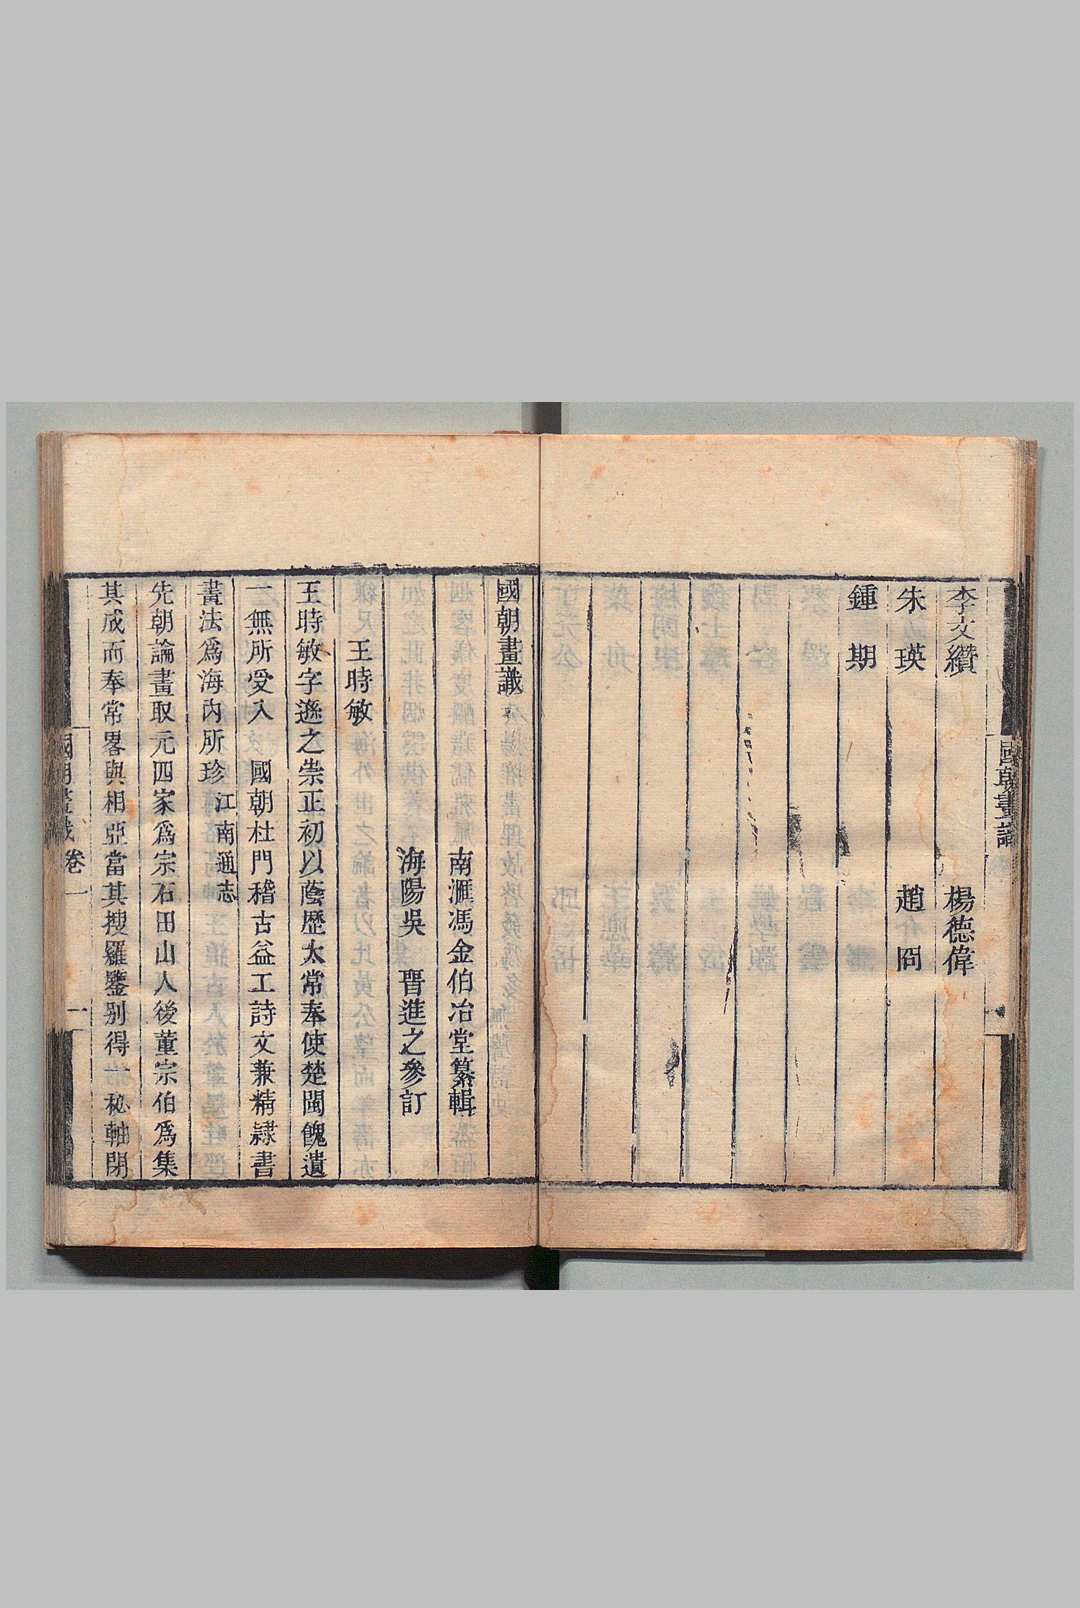 李文纘 楊德偉
朱瑛 趙冏
鍾期
國朝畫識
南滙馮金伯冶堂纂輯
海陽吳 晋進之參訂
王時敏
王時敏字遜之崇正初以蔭歷太常奉使楚閩餽遺
一無所受入 國朝杜門稽古益工詩文兼精隷書
畫法爲海內所珍 江南通志
先朝論畫取元四家爲宗石田山人後董宗伯爲集
其成而奉常畧與相亞當其搜羅鑒别得一秘軸閉
國朝畫識 卷一 一